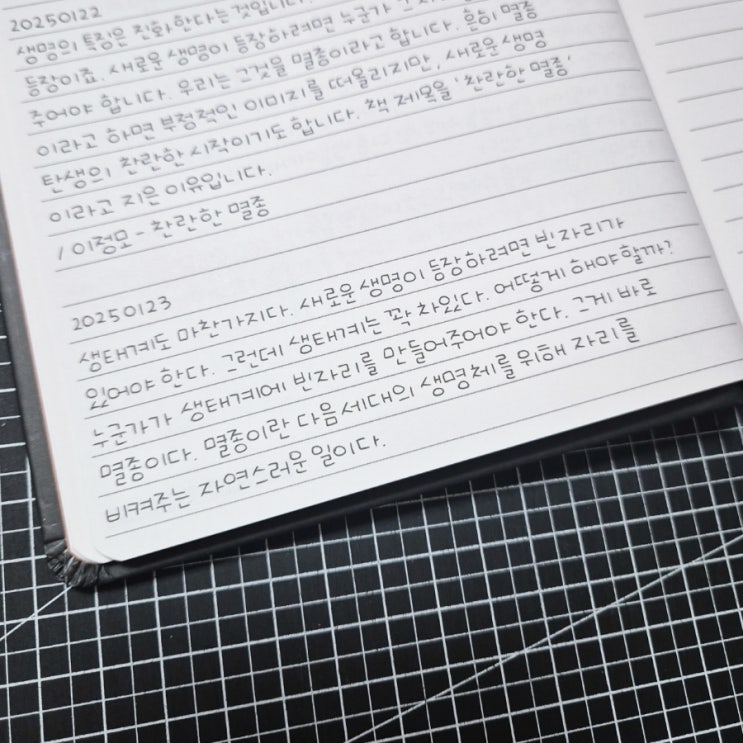 20250122
생명의 특징은 진화한다는 것입니다.
등장이죠. 새로운 생명이 등장하려면 누군가
주어야 합니다. 우리는 그것을 멸종이라고 합니다. 흔히 멸종
이라고 하면 부정적인 이미지를 떠올리지만, 새로운 생명
탄생의 찬란한 시작이기도 합니다. 책 제목을 '찬란한 멸종'
이라고 지은 이유입니다.
/ 이정모 - 찬란한 멸종
20250123
생태계도 마찬가지다. 새로운 생명이 등장하려면 빈자리가
있어야 한다. 그런데 생태계는 꽉 차있다. 어떻게 해야할까?
누군가가 생태계에 빈자리를 만들어주어야 한다. 그게 바로
멸종이다. 멸종이란 다음 세대의 생명체를 위해 자리를
비켜주는 자연스러운 일이다.